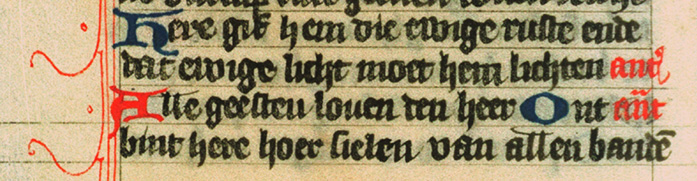 Here gif hem die ewige ruste ende
dat ewige licht moet hem lichten
Alle geesten louen den heer Ont
bint here hoer sielen van allen bandē